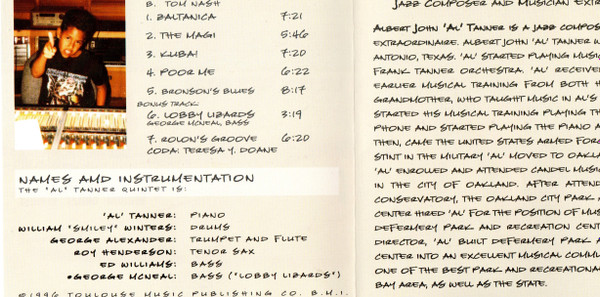 B. TOM NASH
1. ZALTANICA 7:21
2. THE MAGI 5:46
3. KUBA! 7:20
4. POOR ME 6:22
5. BRONSON'S BLUES 8:17
BONUS TRACK:
6. LOBBY LIZARDS 3:19
GEORGE MCNEAL, BASS
7. ROLON'S GROOVE 6:20
CODA: TERESA Y. DOANE
NAMES AMD INSTRUMENTATION
THE "AL" TANNER QUINTET IS:
'AL' TANNER: PIANO
WILLIAM "SMILEY" WINTERS: DRUMS
GEORGE ALEXANDER: TRUMPET AND FLUTE
ROY HENDERSON: TENOR SAX
ED WILLIAMS: BASS
*GEORGE MCNEAL: BASS ("LOBBY LIZARDS")
©1996 TOULOUSE MUSIC PUBLISHING CO. B.M.I.
JAZZ COMPOSER AND MUSICIAN
ALBERT JOHN 'AL' TANNER IS A JAZZ
EXTRAORDINAIRE. ALBERT JOHN 'AL' TANNER
ANTONIO, TEXAS. 'AL' STARTED PLAYING
FRANK TANNER ORCHESTRA. 'AL'
EARLIER MUSICAL TRAINING FROM BOTH
GRANDMOTHER, WHO TAUGHT MUSIC IN AL'S
STARTED HIS MUSICAL TRAINING PLAYING
PHONE AND STARTED PLAYING THE PIANO
THEN, CAME THE UNITED STATES ARMED
STINT IN THE MILITARY 'AL' MOVED TO
'AL' ENROLLED AND ATTENDED CANDEL
IN THE CITY OF OAKLAND. AFTER
CONSERVATORY, THE OAKLAND CITY PARK
CENTER HIRED 'AL' FOR THE POSITION OF
DEFERMERY PARK AND RECREATION
DIRECTOR, 'AL' BUILT DEFERMERY PARK
CENTER INTO AN EXCELLENT MUSICAL
ONE OF THE BEST PARK AND
BAY AREA, AS WELL AS THE STATE.